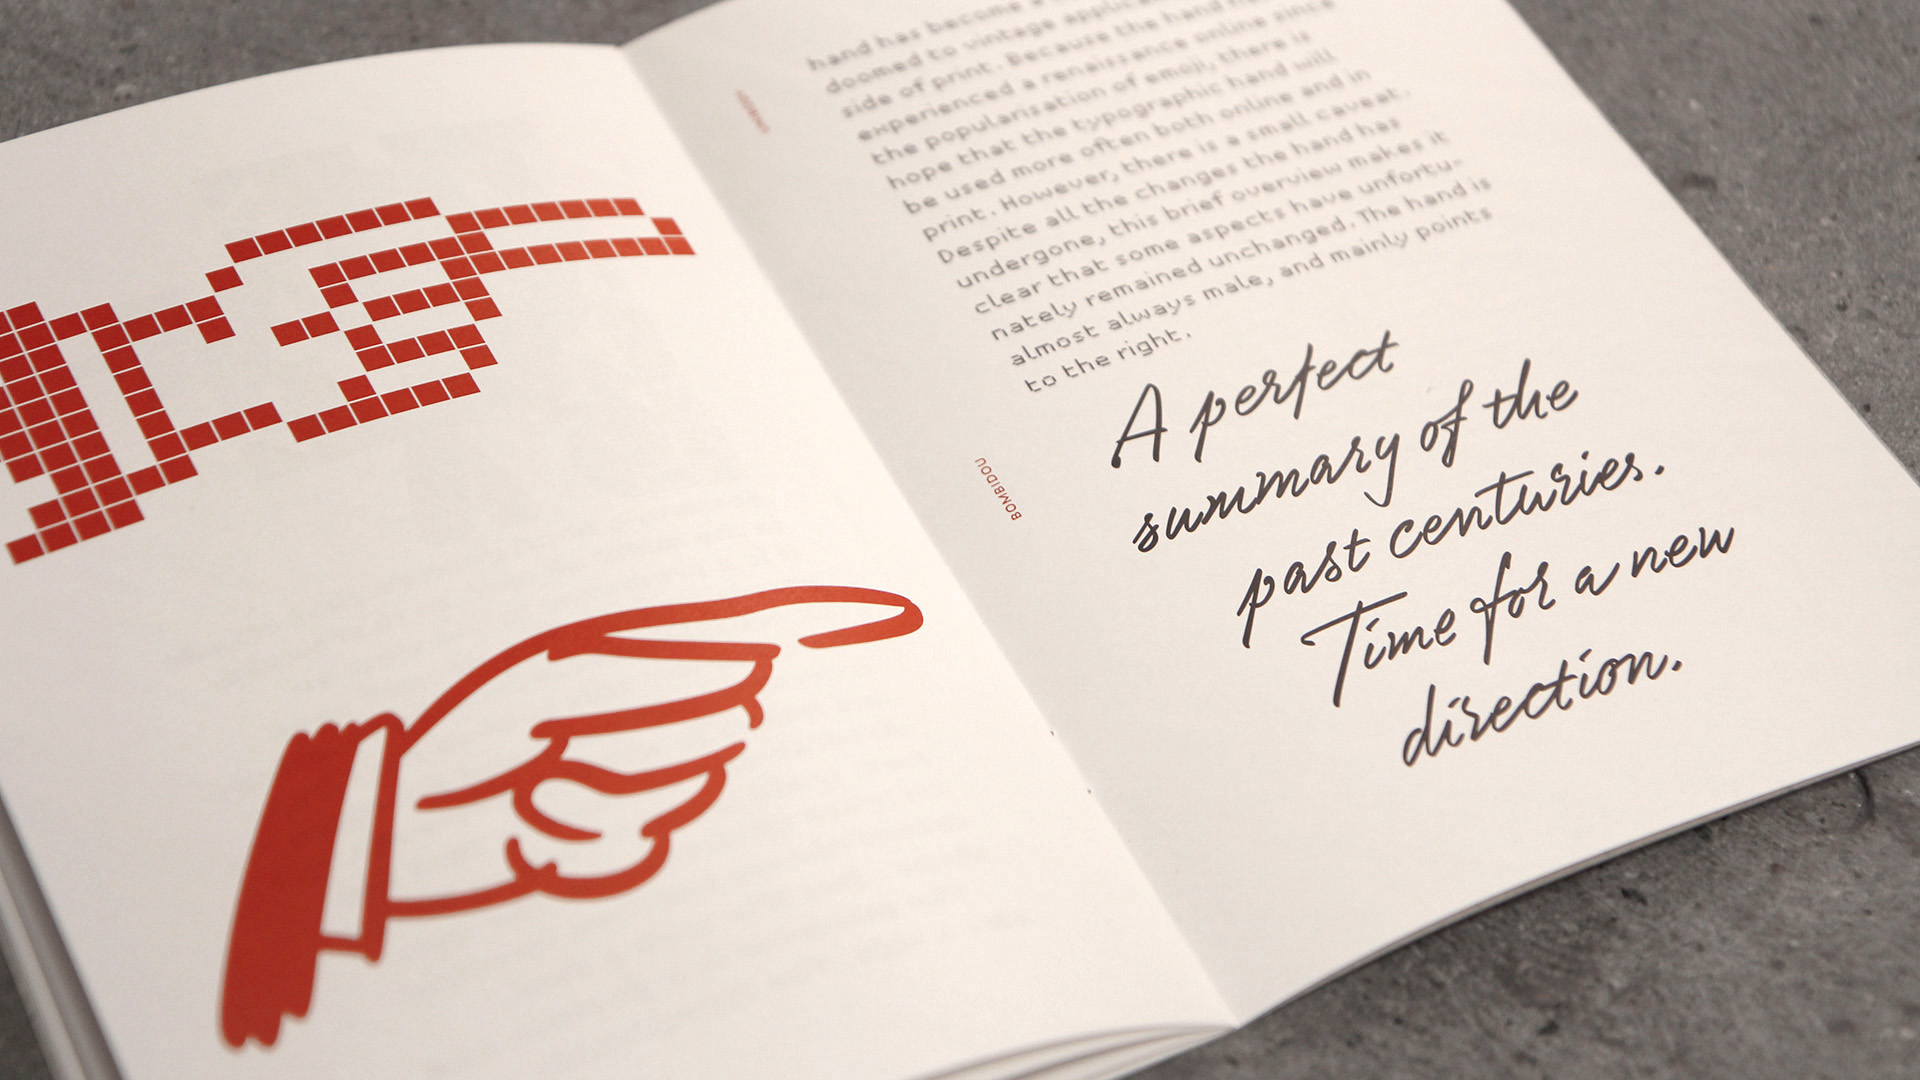 hand has become a
doomed to vintage
side of print. Because the hand
experienced a renaissance online since
the popularisation of emoji, there is
hope that the typographic hand will
be used more often both online and in
print. However, there is a small caveat.
Despite all the changes the hand has
undergone, this brief overview makes it
clear that some aspects have unfortu-
nately remained unchanged. The hand is
almost always male, and mainly points
to the right.
BOMBIDOU
A perfect
summary of the
past centuries.
Time for a new
direction.